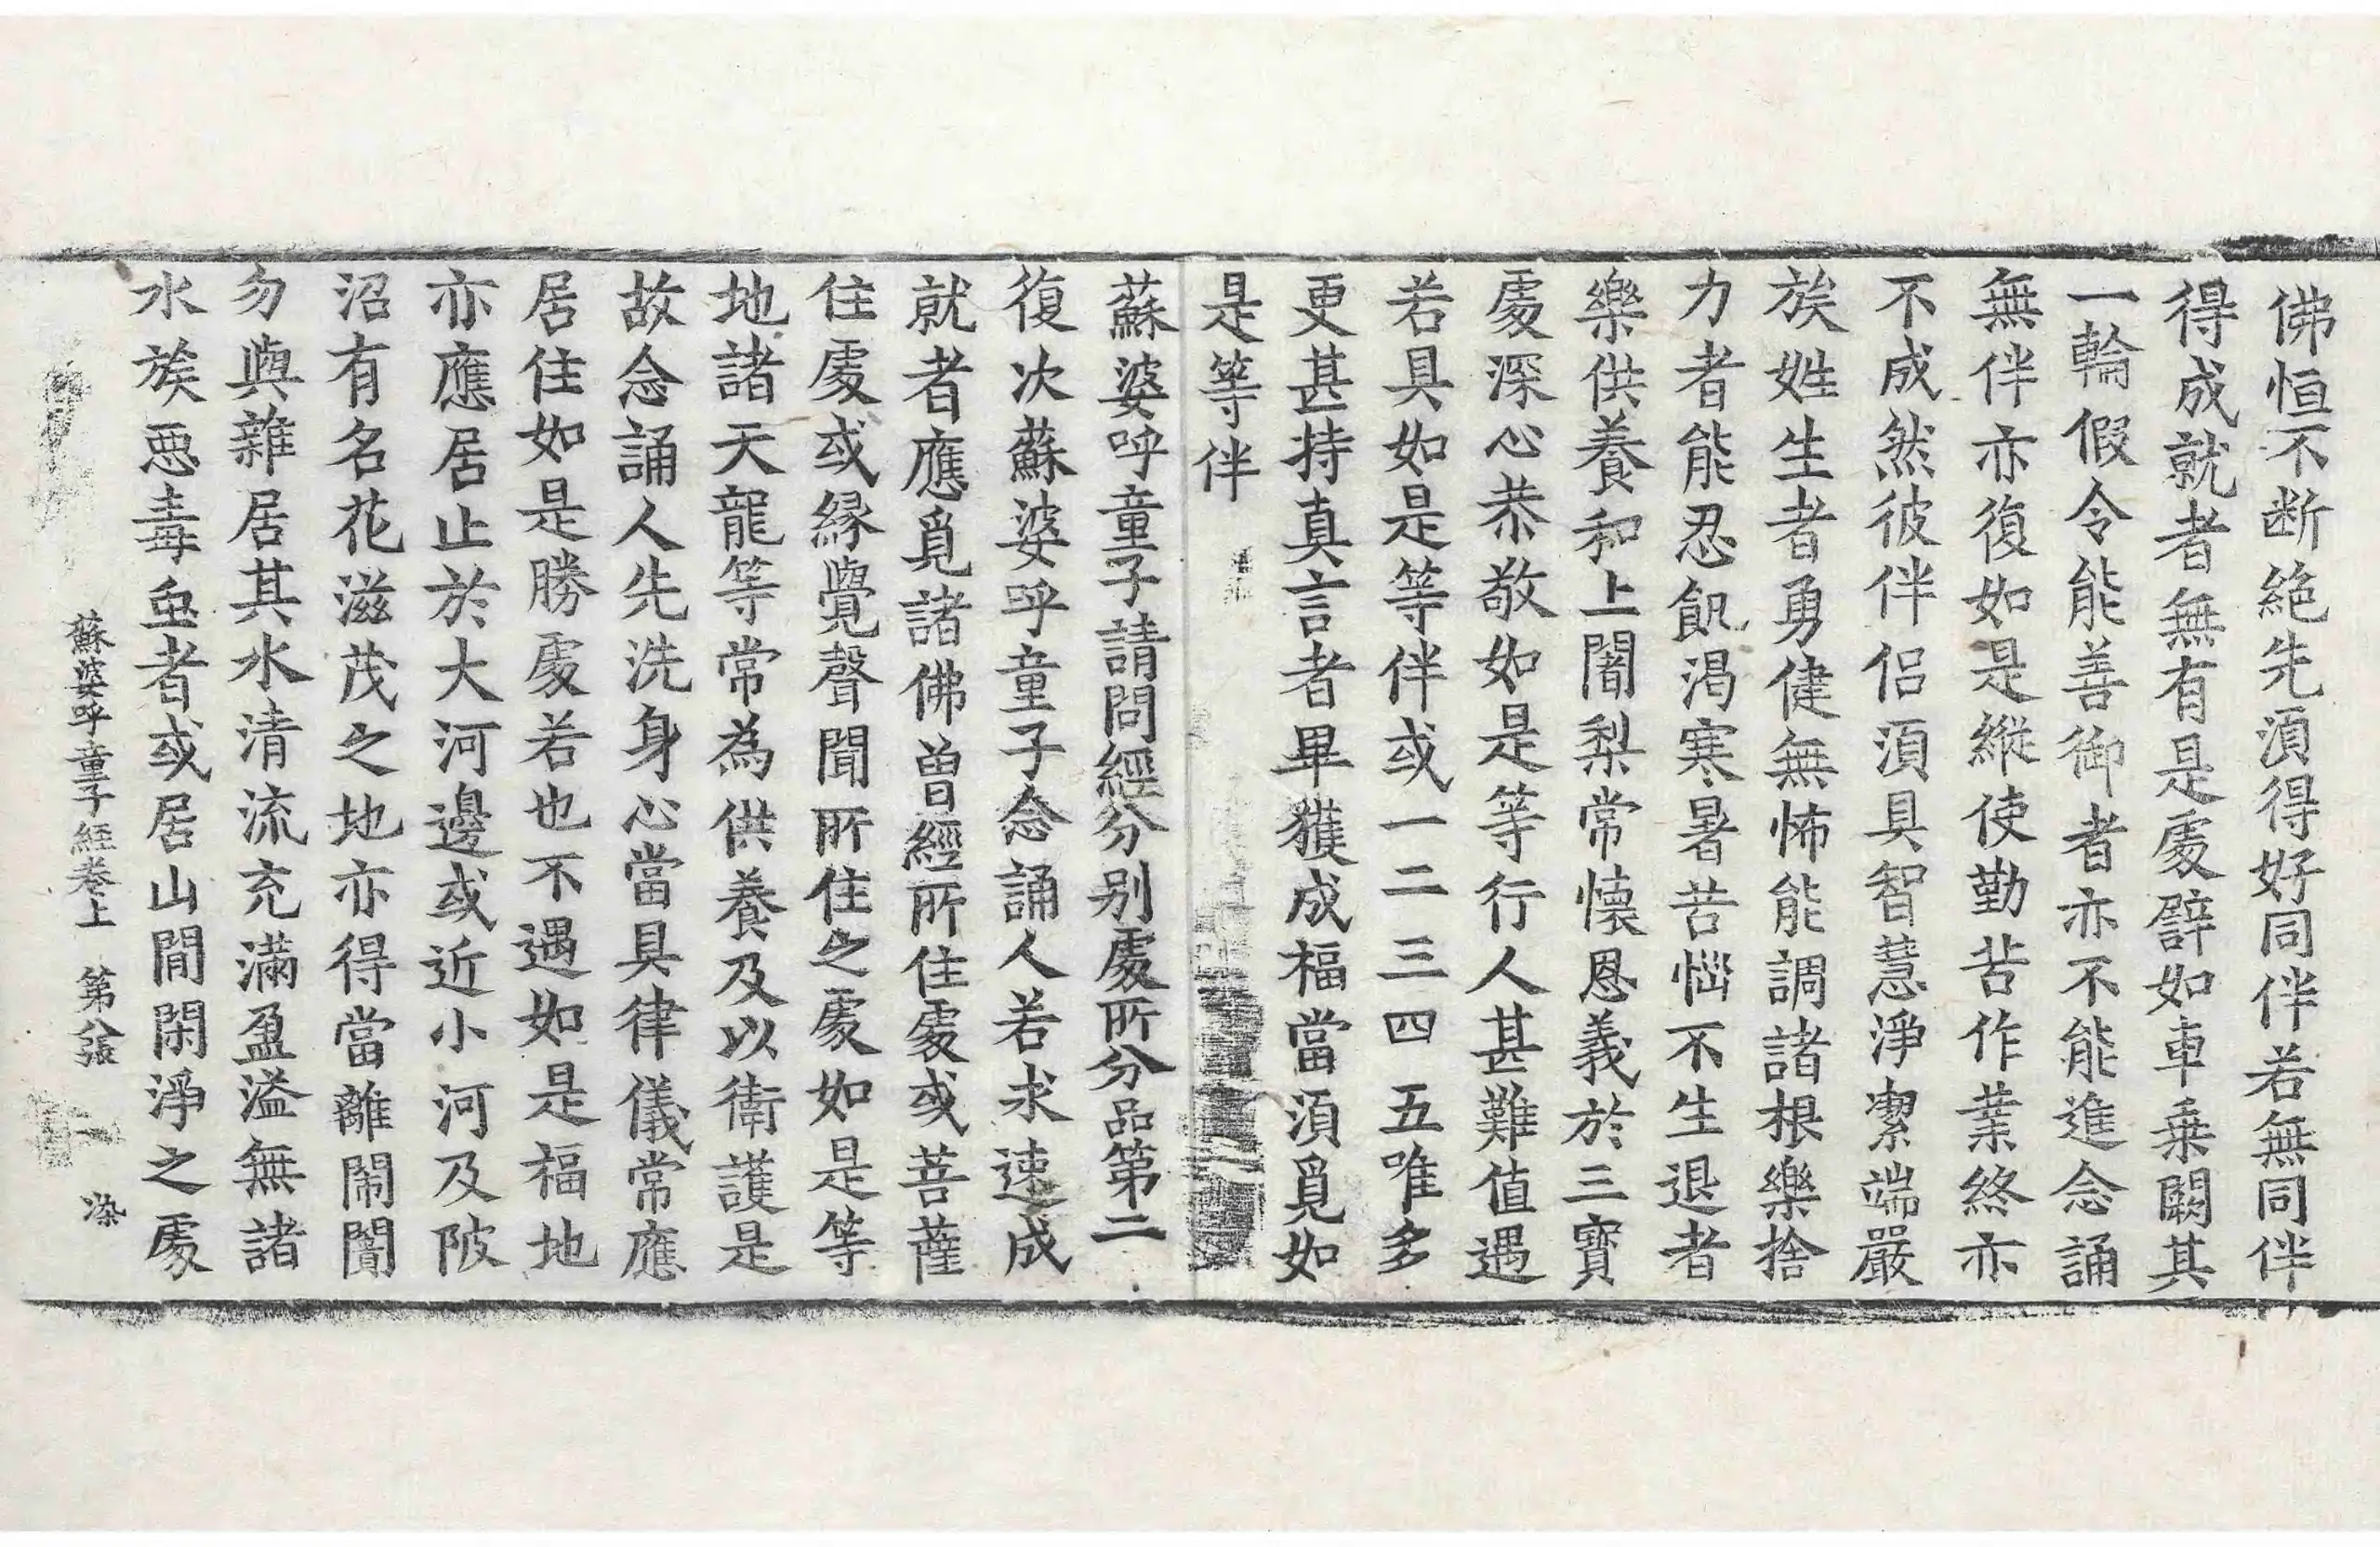 佛恒不斷絶先湏得好同伴若無同伴
得成就者無有是處辟如車乗闕其
一輪假令能善御者亦不能進念誦
無伴亦復如是縱使勤苦作業終亦
不成然彼伴侣湏具智慧淨潔端嚴
族姓生者勇健無怖能調諸根樂捨
力者能忍飢渴寒暑苦惱不生退者
樂供養和上闍梨常懐恩義於三寳
處深心恭敬如是等行人甚難值遇
若具如是等伴或一二三四五唯多
更甚持真言者畢獲成福當湏覓如
是等伴
蘇婆呼童子請問經分别處所分品第二
復次蘇婆呼童子念誦人若求速成
就者應覓諸佛曽經所住處或菩薩
住處或縁覺聲聞所住之處如是等
地諸天龍等常為供養及以衛護是
故念誦人先洗身心當具律儀常應
居住如是勝處若也不遇如是福地
亦應居止於大河邊或近小河及陂
沼有名花滋茂之地亦得當離閙閴
勿與雜居其水清流充滿盈溢無諸
水族惡毒虫者或居山閒閑淨之處
蘇婆呼童子經卷上 第八張 染